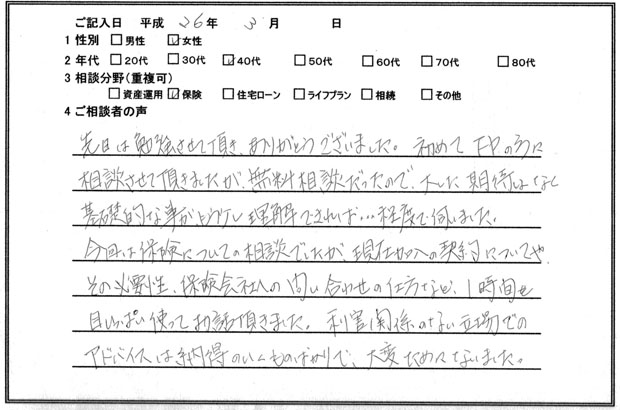 ご記入日 平成 26年 3月 日
1 性別 □男性 ☑女性
2 年代 □20代 □30代 ☑40代 □50代 □60代 □70代 □80代
3 相談分野(重複可)
□資産運用 ☑保険 □住宅ローン □ライフプラン □相続 □その他
4 ご相談者の声
先日は勉強させて頂き、ありがとうございました。初めてFPの方に
相談させて頂きましたが、無料相談だったので、大した期待はなく
基礎的な事が少し理解できれば…程度で伺いました。
今回は保険についての相談でしたが、現在加入の契約についてや、
その必要性、保険会社への問い合わせの仕方など、1時間を
目いっぱい使ってお話頂きました。利害関係のない立場での
アドバイスは納得のいくものばかりで、大変ためになりました。